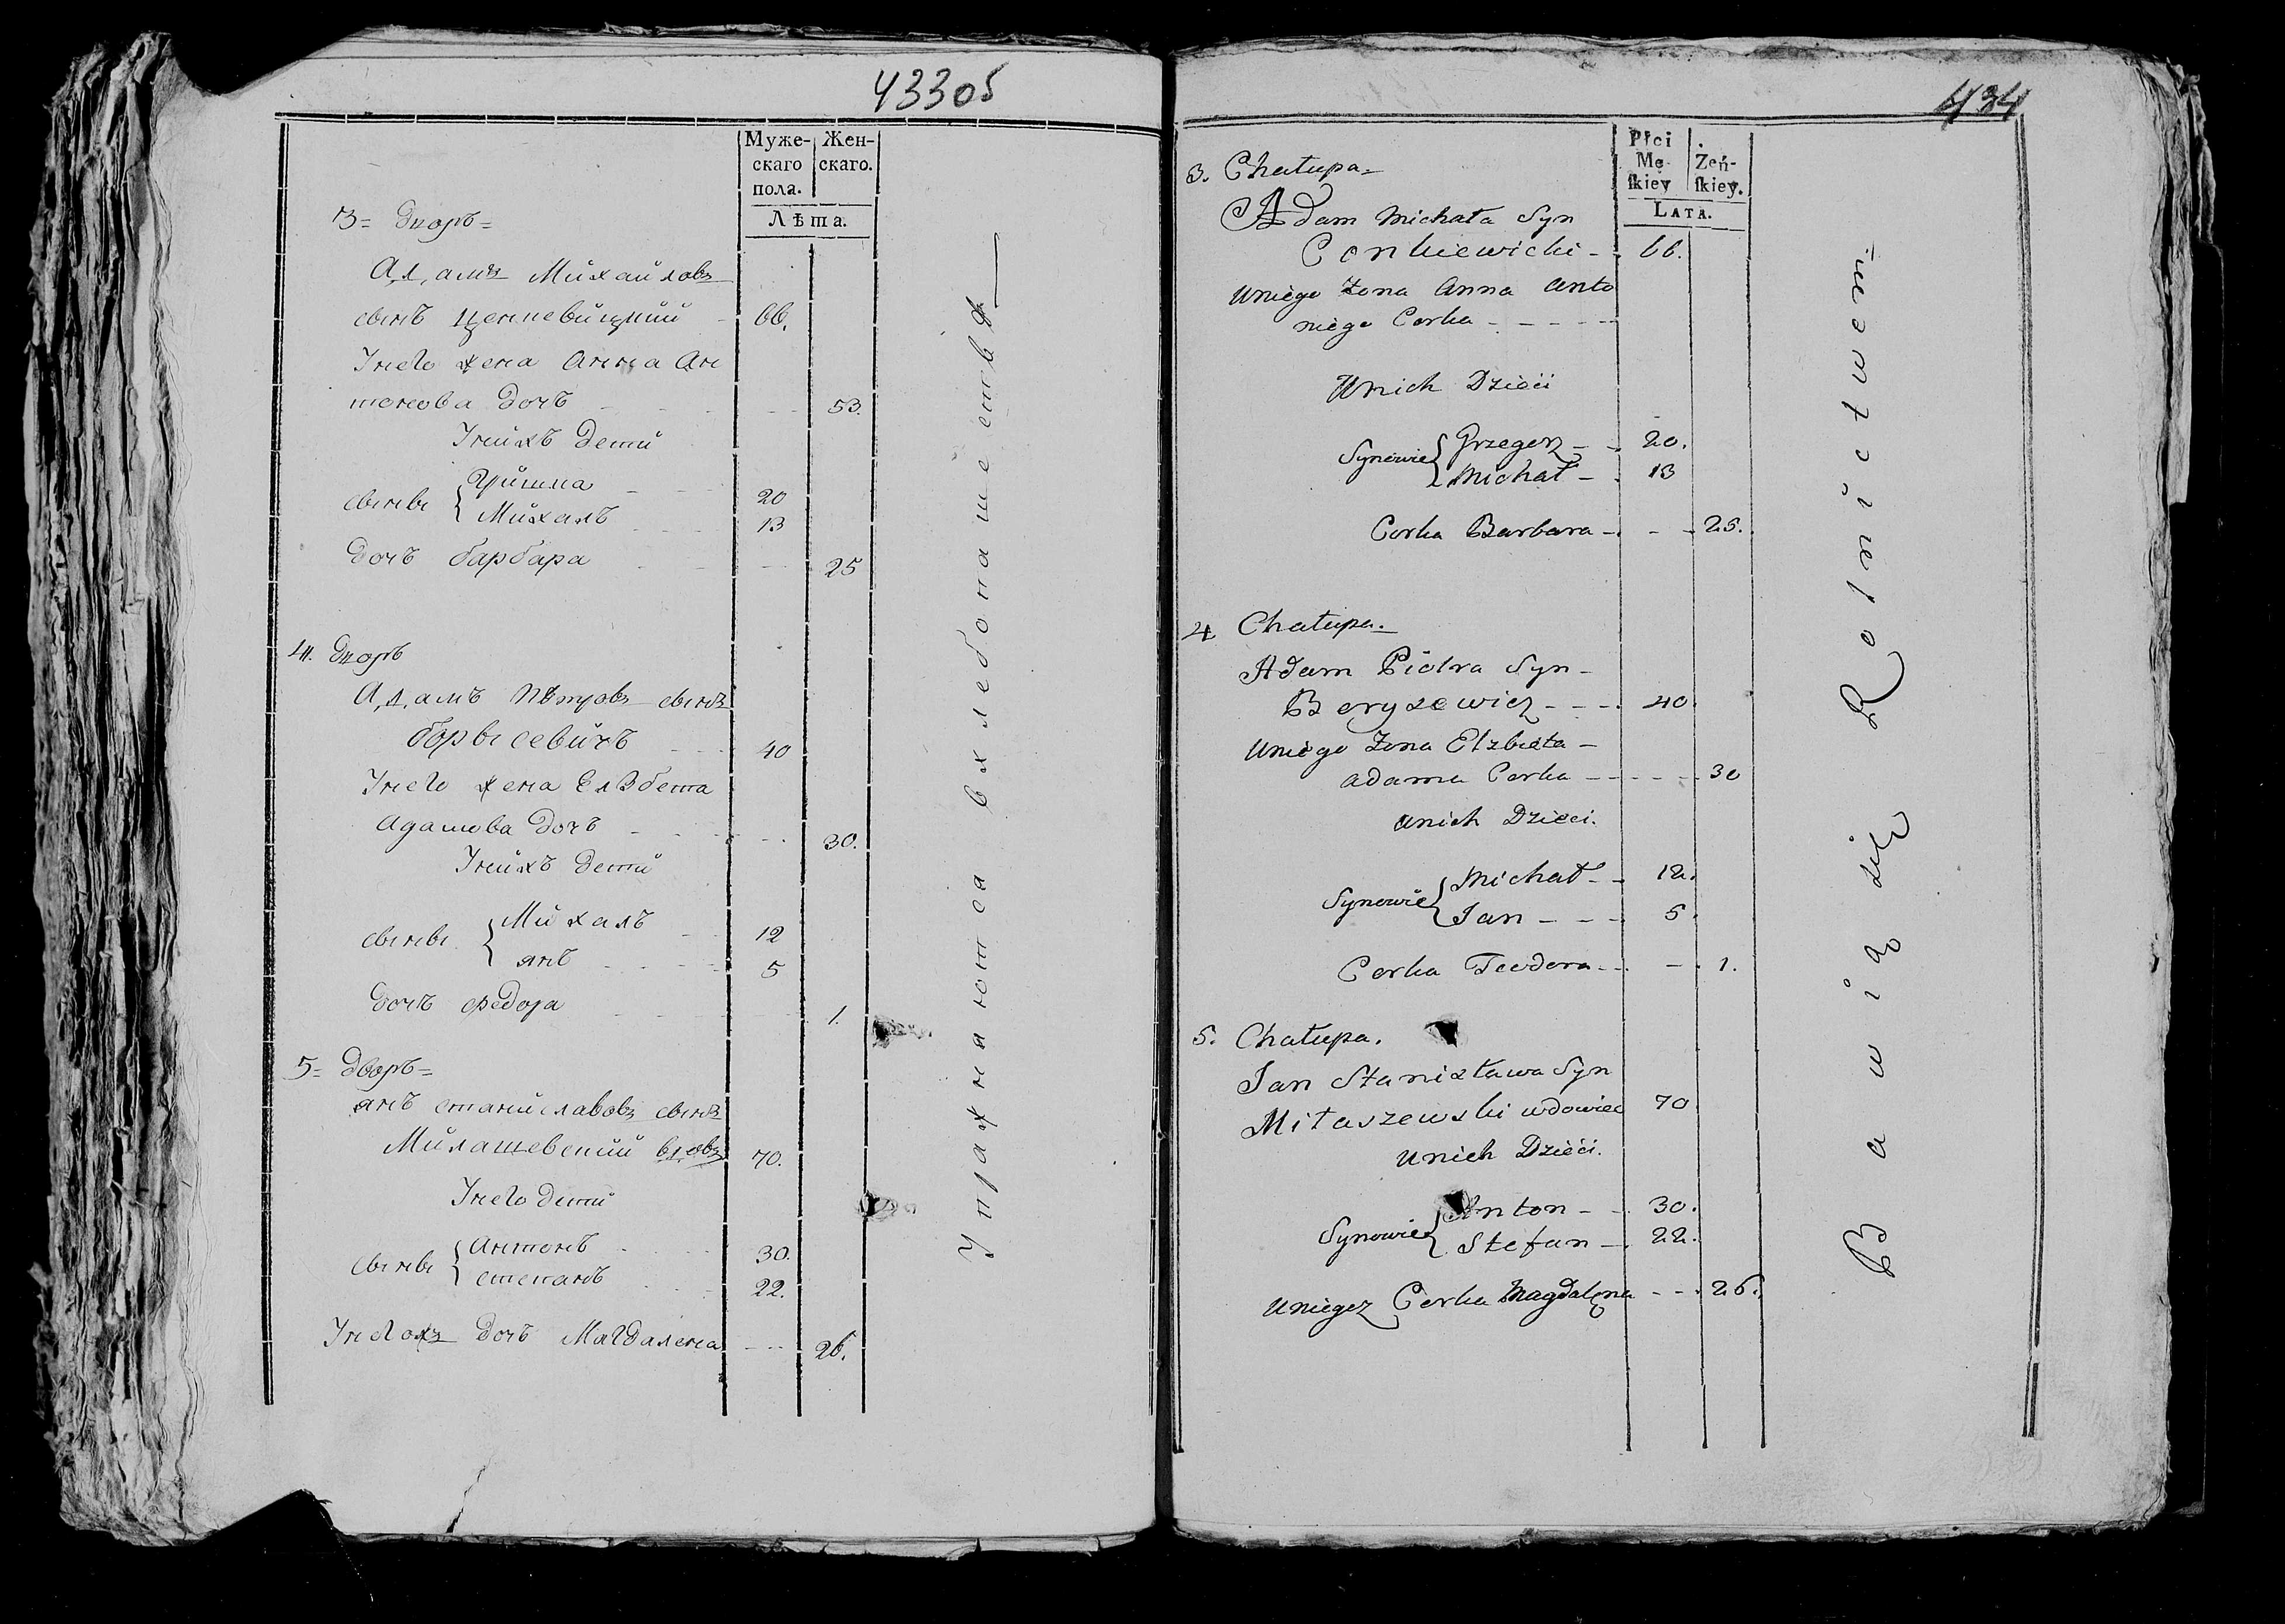 433об
Муже- Жен-
скаго скаго.
пола.
Лѣта.
3= Дворъ=
Адамъ Михайловъ
сынъ Ценкевицкий - 66.
Унего жена Анна Ан
тонова дочъ - - - 53.
Унихъ дети
сыны { Гришка - 20
Михалъ - 13
дочъ барбара - 25
4. Дворъ
Адамъ Пѣтровъ сынъ
борысевичъ - 40
Унего жена Елзбета
Адамова дочъ - - - 30.
Унихъ дети
сыны { Михалъ - 12
янъ - - - 5
дочъ федора - 1.
5= Дворъ=
янъ станиславовъ сынъ
Милашевский вдовъ 70.
Унего дети
сыны { Антонъ - 30.
степанъ - 22.
Унегожъ дочъ Магдалена - - - 26.
Упражняются в хлебопашестве
434
Płci
Mę- Żeń-
ſkiey ſkiey.
LATA.
3. Chałupa=
Adam Michała Syn
Conkiewicki - 66.
Uniego Zona Anna Anto
niego Corka - - - - -
Unich Dzieci
Synowie { Grzegorz - - 20.
Michał - 13
Corka Barbara - - - 25.
4 Chałupa.
Adam Piotra Syn -
Borysewicz - - - 40.
Uniego Zona Elzbieta -
Adama Corka - - - - - 30
Unich Dzieci.
Synowie { Michał - - 12.
Jan - - - 5.
Corka Teodora - - - 1.
5. Chałupa.
Jan Stanisława Syn
Miłaszewski wdowiec 70
Unich Dzieci.
Synowie { Anton - - 30.
Stefan - 22.
Uniegoz Corka Magdalena - - - 26.
Bawią się Rolnictwem=